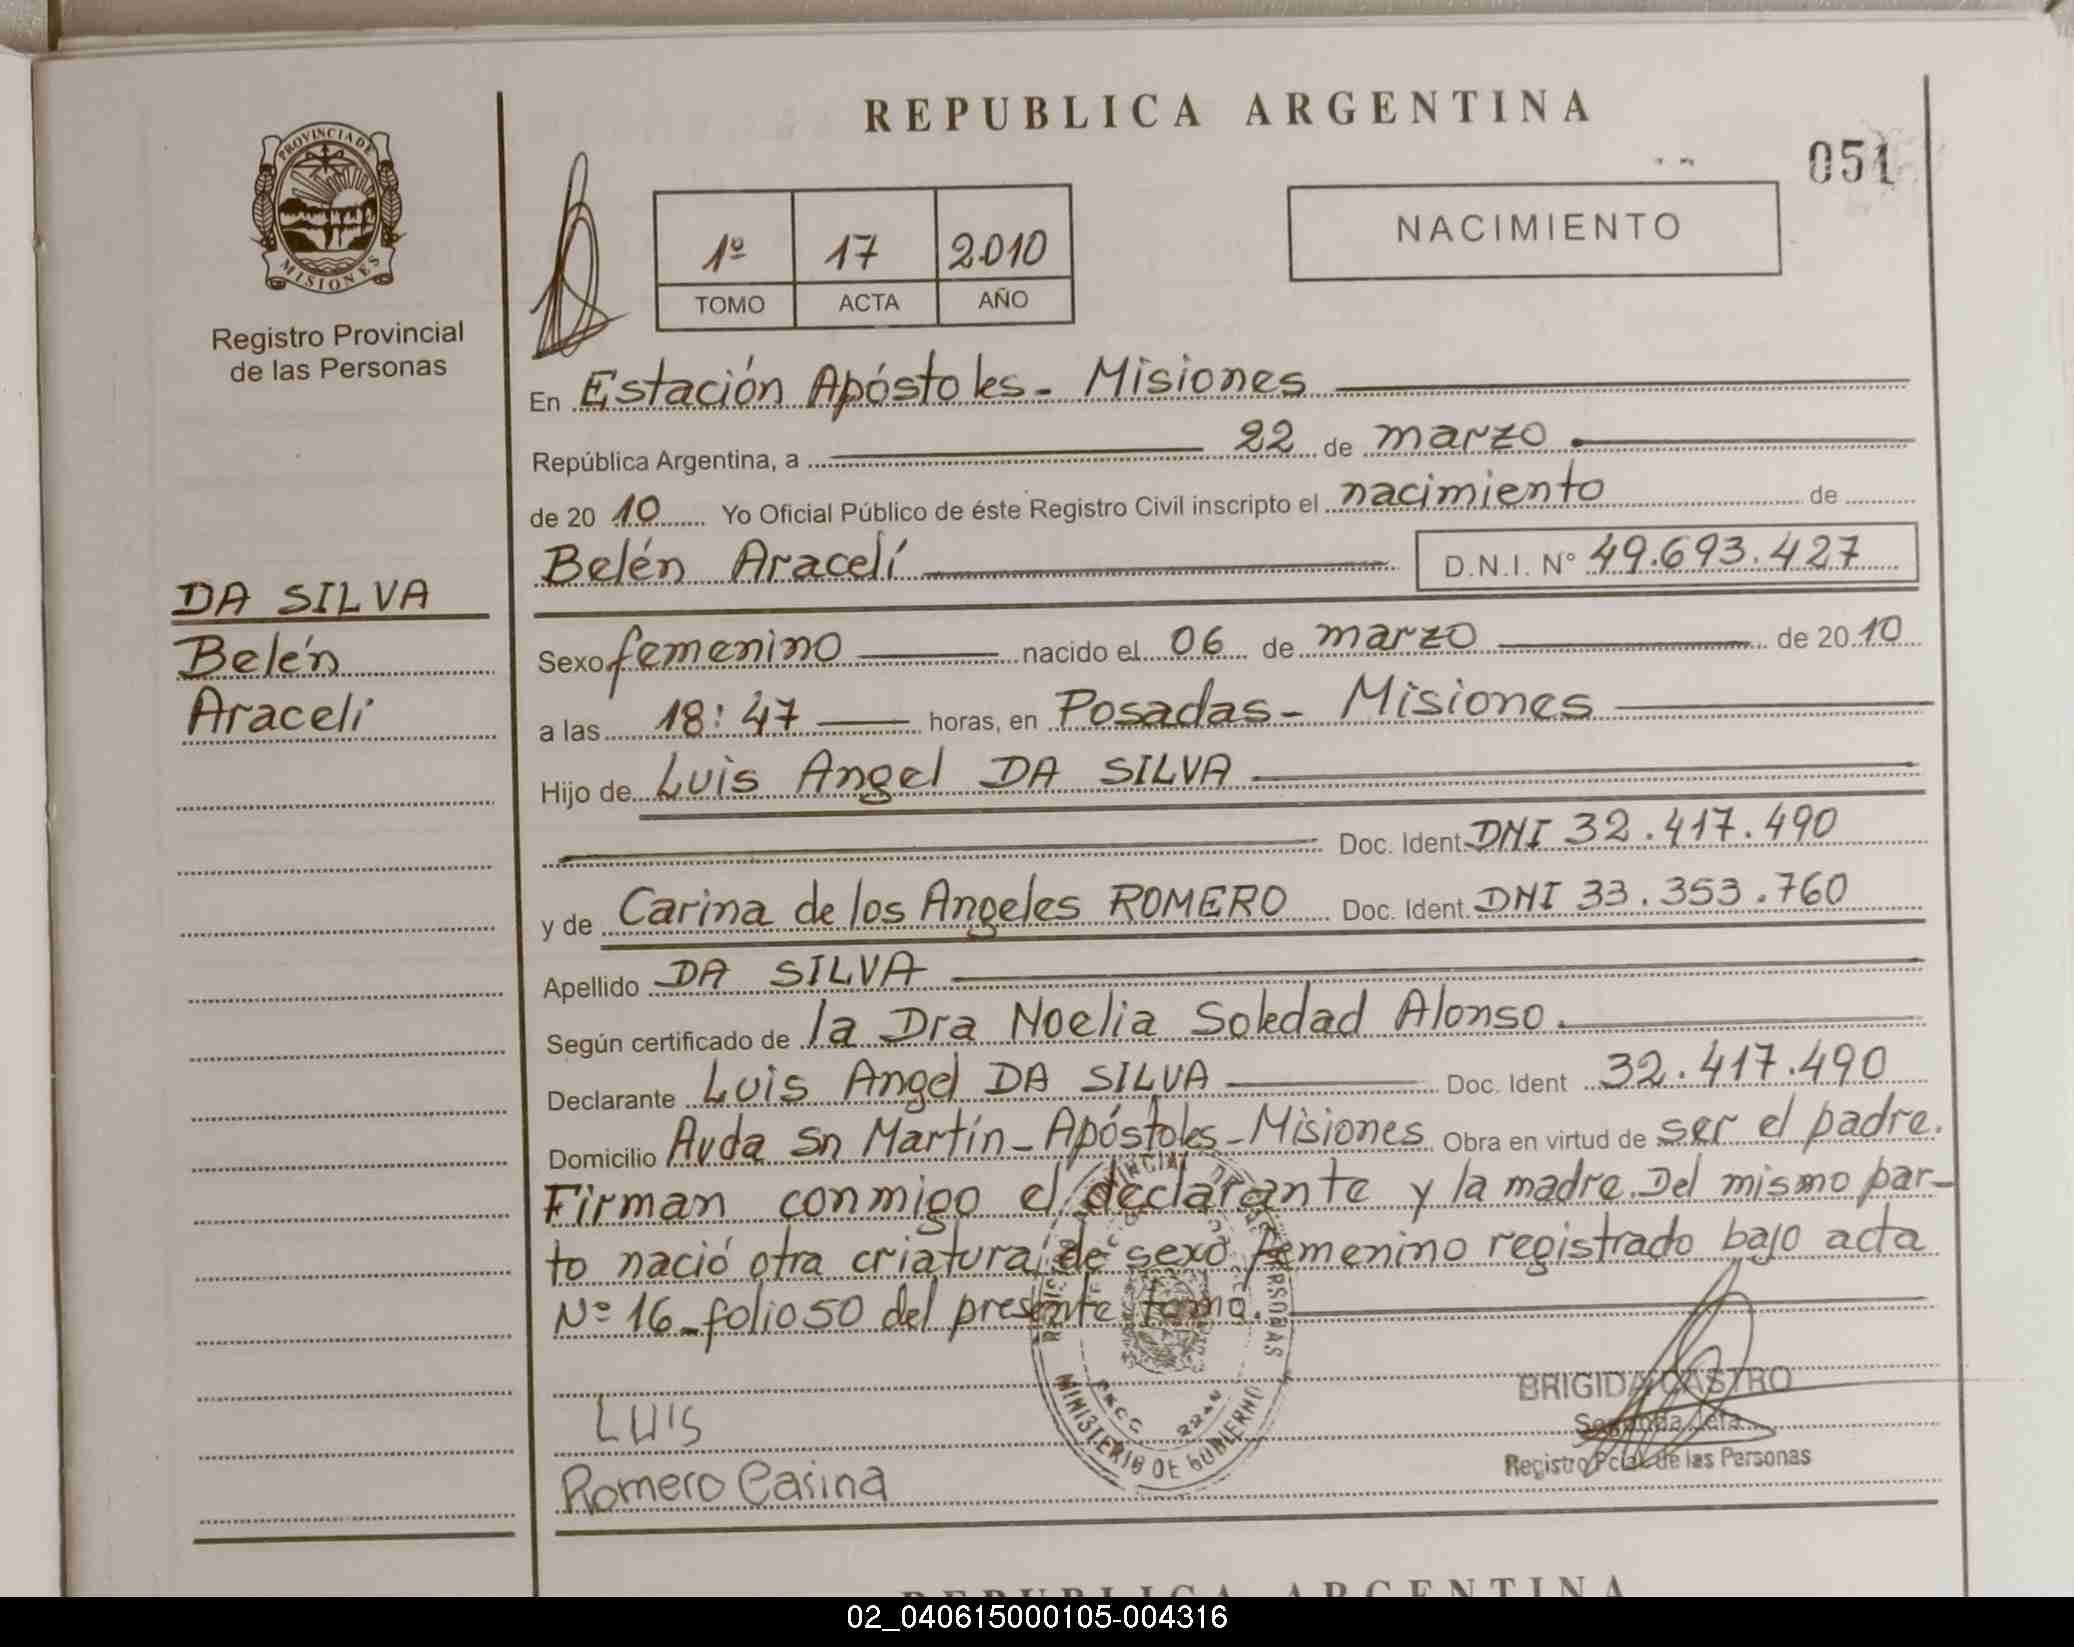 REPUBLICA ARGENTINA
051
PROVINCIA DE
MISIONES
Registro Provincial
de las Personas
1º 17 2010
TOMO ACTA AÑO
NACIMIENTO
En Estación Apóstoles - Misiones
República Argentina, a 22 de marzo
de 20 10 Yo Oficial Público de éste Registro Civil inscripto el nacimiento de
Belén Aracelí D.N.I. Nº 49.693.427
DA SILVA
Belén
Araceli
Sexo femenino nacido el 06 de marzo de 20 10
a las 18:47 horas, en Posadas - Misiones
Hijo de Luis Angel DA SILVA
Doc. Ident. DNI 32.417.490
y de Carina de los Angeles ROMERO Doc. Ident. DNI 33.353.760
Apellido DA SILVA
Según certificado de la Dra Noelia Soledad Alonso.
Declarante Luis Angel DA SILVA Doc. Ident 32.417.490
Domicilio Avda Sn Martín - Apóstoles - Misiones Obra en virtud de ser el padre.
Firman conmigo el declarante y la madre. Del mismo par-
to nació otra criatura de sexo femenino registrado bajo acta
Nº 16 - folio 50 del presente tomo.
LUIS
Romero Carina
MINISTERIO DE GOBIERNO
BRIGIDA CASTRO
Segunda Jefa
Registro Pcial de las Personas
REPUBLICA ARGENTINA
02_040615000105-004316